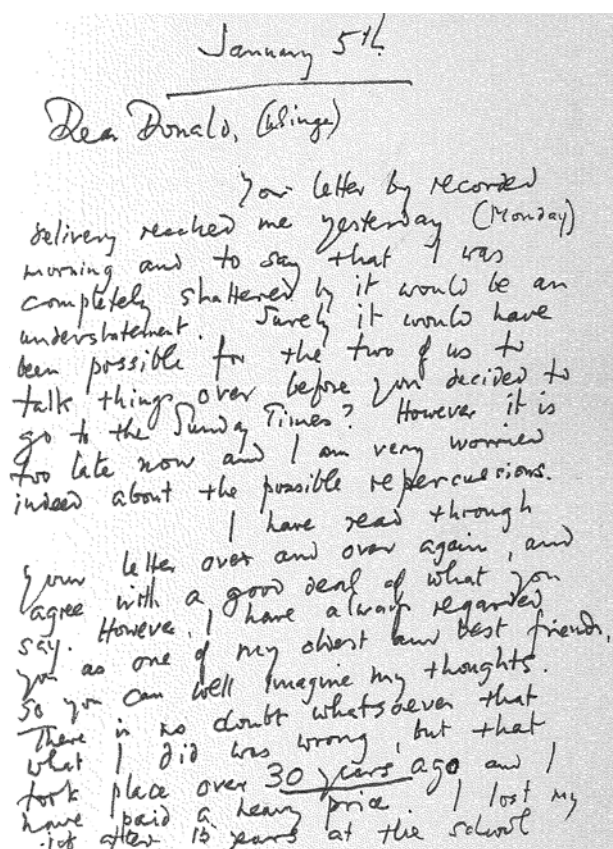 January 5th
Dear Donald, (Winge)
Your letter by recorded
delivery reached me yesterday (Monday)
morning and to say that I was
completely shattered by it would be an
understatement. Surely it would have
been possible for the two of us to
talk things over before you decided to
go to the Sunday Times? However it is
too late now and I am very worried
indeed about the possible repercussions.
I have read through
your letter over and over again, and
agree with a good deal of what you
say. However, I have always regarded
you as one of my oldest and best friends,
so you can well imagine my thoughts.
There is no doubt whatsoever that
what I did was wrong, but that
took place over 30 years ago and I
have paid a heavy price. I lost my
job after 15 years at the school